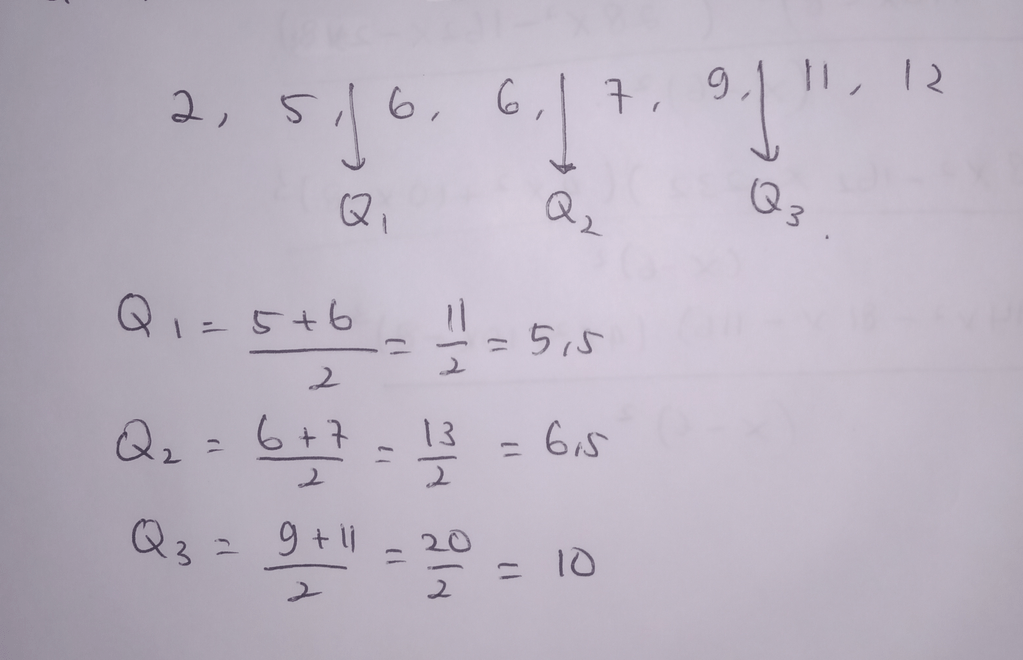 2, 5, 6, 6, 7, 9, 11, 12
Q₁ Q₂ Q₃
Q₁ = 5+6/2 = 11/2 = 5,5
Q₂ = 6+7/2 = 13/2 = 6,5
Q₃ = 9+11/2 = 20/2 = 10